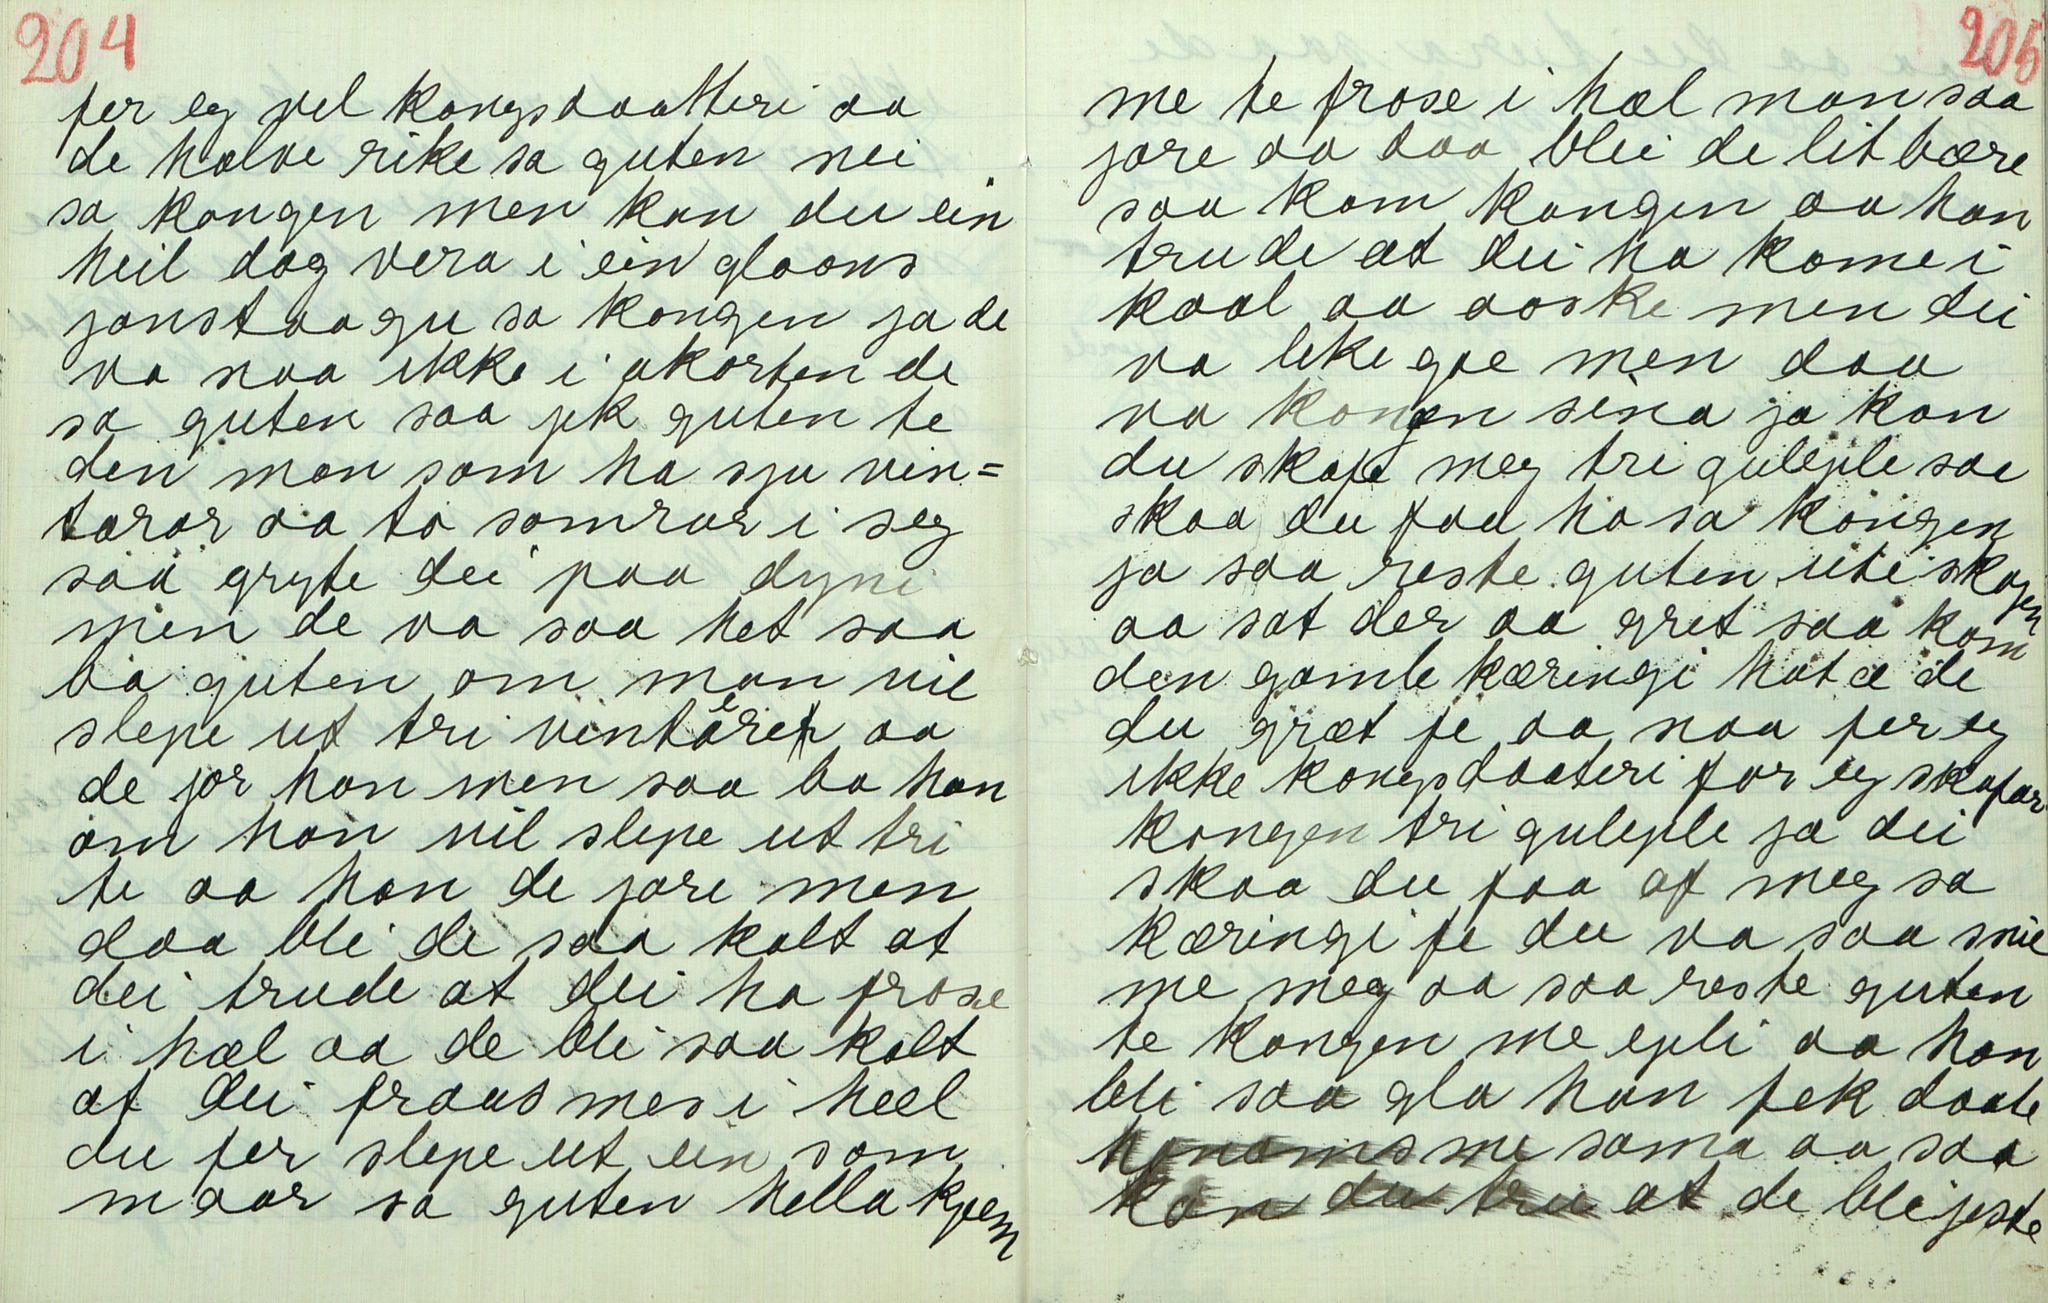 204
fer eg vel kongsdaatteri aa
de halve rike sa guten nei
sa kongen men kan du ein
heil dag vera i ein gloans
jonstaagu sa kongen ja de
va naa ikke i akorten de
sa guten saa jek guten te
den man som ha sju vin=
tarar aa to somrar i seg
saa gryte dei paa dyni
men de va saa het saa
ba guten om man vil
slepe ut tri vintåre aa
de jor han men saa ba han
om han vil slepe ut tri
te aa han de jore men
daa blei de saa kalt at
dei trude at dei ha frose
i hæl aa de blei saa kalt
at dei fraus mes i heel
du fer slepe ut ein som
maar sa guten hella kjem
205
me te frose i hæl man saa
jore aa daa blei de lit bære
saa kom kongen aa han
trude at dei ha kome i
kaal aa aoske men dei
va like goe men daa
va kongen sina ja kan
du skafe meg tri guleple sae
skaa du faa ho sa kongen
ja saa reste guten uti skogen
aa sat der aa gret saa kom
den gamle kæringi hot æ de
du græt fe aa naa fer eg
ikke kongsdaateri for eg skafar
kongen tri guleple ja dei
skaa du faa af meg sa
kæringi fe du va saa snil
me meg aa saa reste guten
te kongen me epli aa han
blei saa gla han fek daate
honoms me soma aa saa
kan du tru at de blei jeste